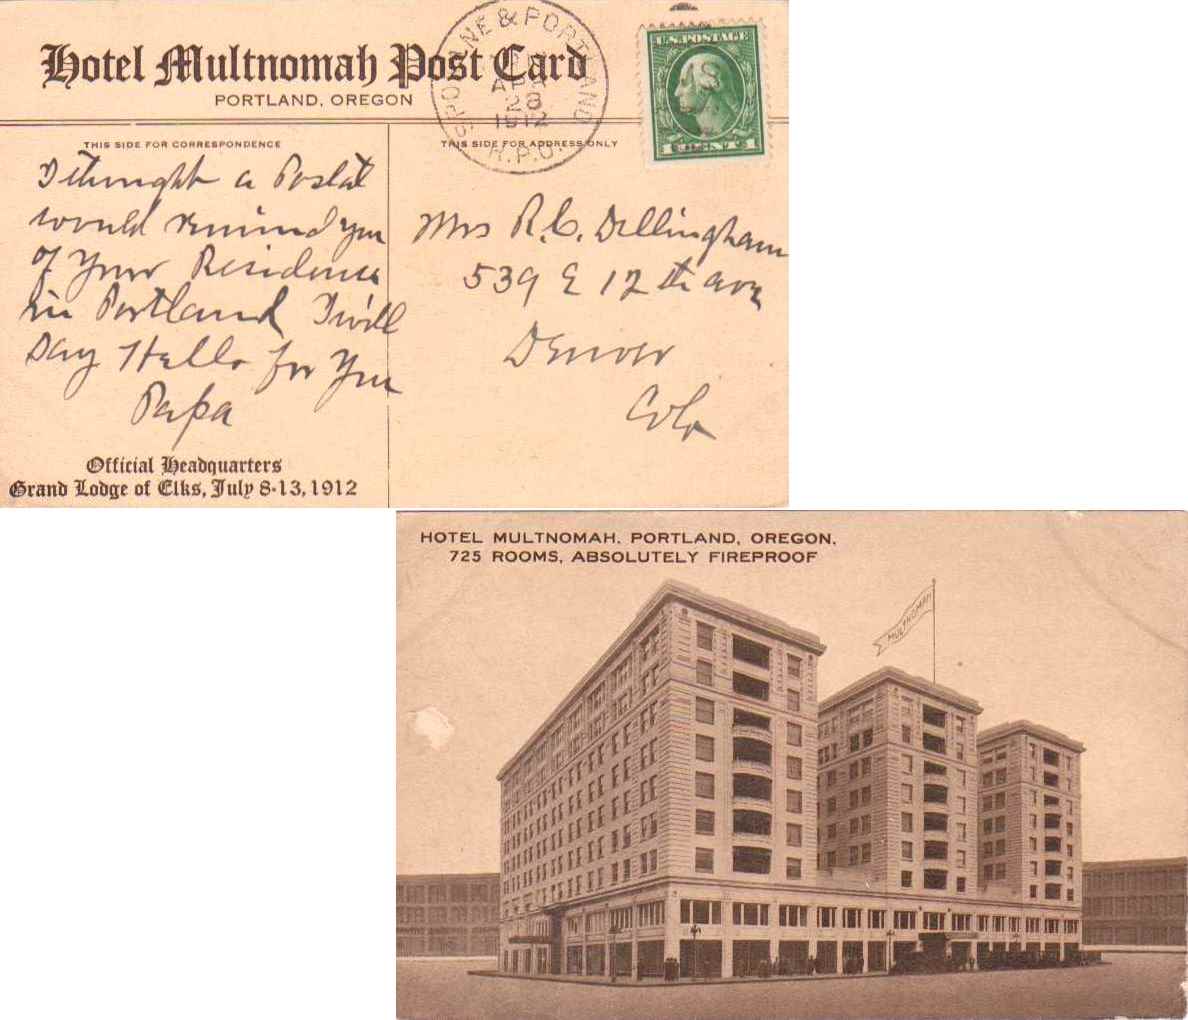 Hotel Multnomah Post Card
PORTLAND, OREGON
SPOKANE & PORTLAND
APR
28
1912
R.P.O.
U.S. POSTAGE
1 CENT 1
THIS SIDE FOR CORRESPONDENCE
THIS SIDE FOR ADDRESS ONLY
I thought a Postal
would remind you
of your Residence
in Portland I will
Say Hello for you
Papa
Mrs R.C. Dillingham
539 E 12th ave
Denver
Colo
Official Headquarters
Grand Lodge of Elks, July 8-13, 1912
HOTEL MULTNOMAH, PORTLAND, OREGON,
725 ROOMS, ABSOLUTELY FIREPROOF
MULTNOMAH